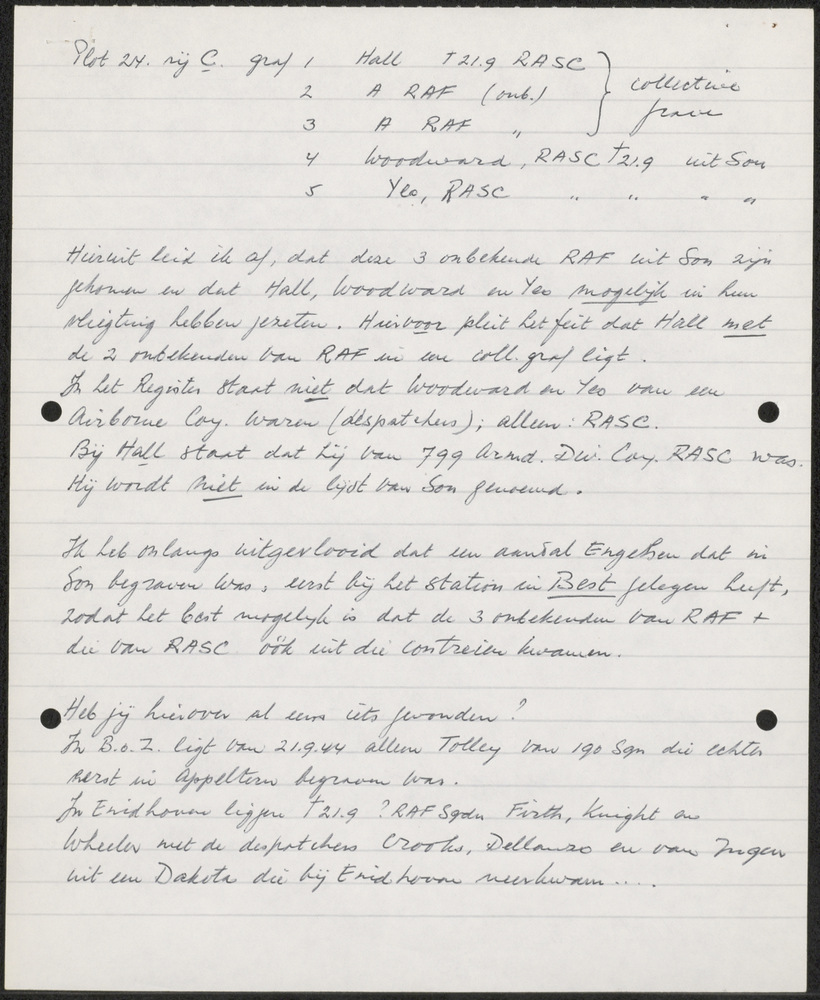 Plot 24. rij C. graf 1 Hall †21.9 RASC } collective grave
2 A RAF (onb.)
3 A RAF "
4 Woodward, RASC †21.9 uit Son
5 Yeo, RASC " " " "
Hieruit leid ik af, dat deze 3 onbekende RAF uit Son zijn
gekomen en dat Hall, Woodward en Yeo mogelijk in hun
vliegtuig hebben gezeten. Hiervoor pleit het feit dat Hall met
de 2 onbekenden van RAF in een coll. graf ligt.
In het Register staat niet dat Woodward en Yeo van een
Airborne Coy. waren (despatchers); alleen: RASC.
Bij Hall staat dat hij van 799 Armd. Div. Coy. RASC was.
Hij wordt niet in de lijst van Son genoemd.
Ik heb onlangs uitgevlooid dat een aantal Engelsen dat in
Son begraven was, eerst bij het station in Best gelegen heeft,
zodat het best mogelijk is dat de 3 onbekenden van RAF +
die van RASC óók uit die contreien kwamen.
Heb jij hierover al eens iets gevonden?
In B.o.Z. ligt van 21.9.44 alleen Tolley van 190 Sqn die echter
eerst in Appeltern begraven was.
In Eindhoven liggen †21.9 ? RAF Sqdn Firth, Knight en
Wheeler met de despatchers Crooks, Dellanzo en van Ingen
uit een Dakota die bij Eindhoven neerkwam....